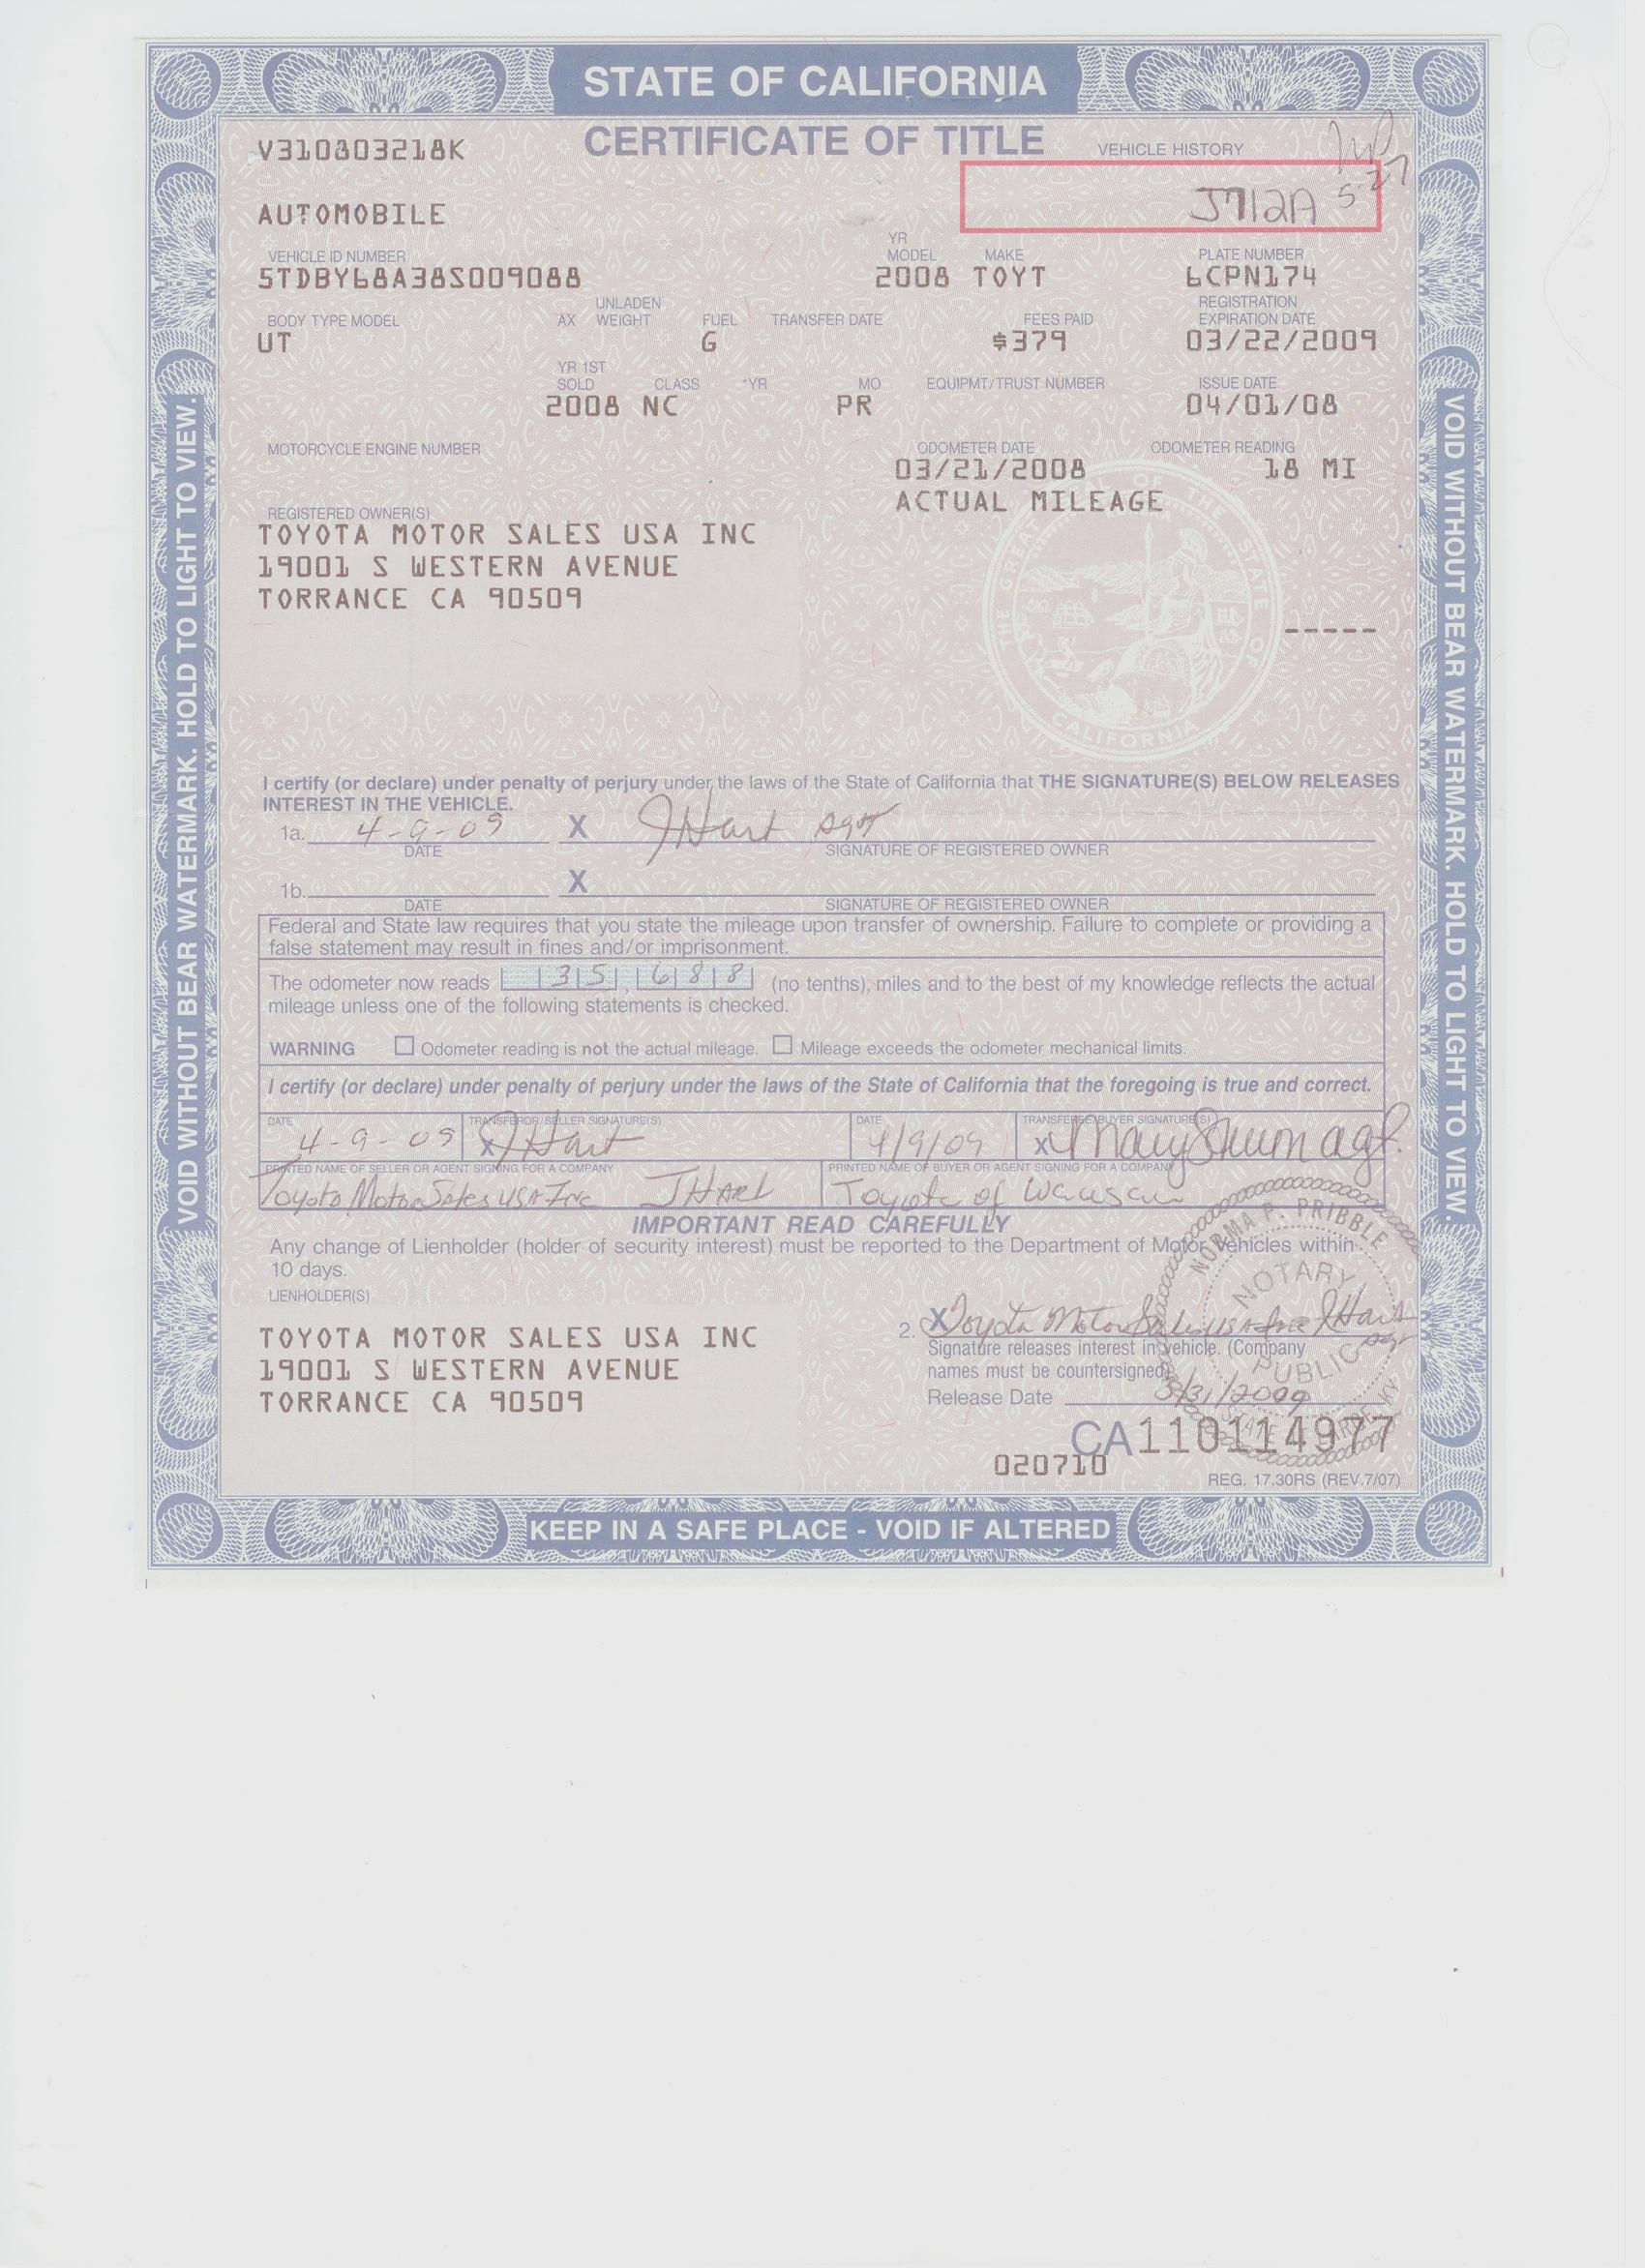 STATE OF CALIFORNIA
CERTIFICATE OF TITLE
V310803218K
VEHICLE HISTORY
5-27
J712A
AUTOMOBILE
VEHICLE ID NUMBER
YR MODEL MAKE PLATE NUMBER
5TDBY68A38S009088 2008 TOYT 6CPN174
BODY TYPE MODEL AX UNLADEN WEIGHT FUEL TRANSFER DATE FEES PAID REGISTRATION EXPIRATION DATE
UT G $379 03/22/2009
YR 1ST SOLD CLASS *YR MO EQUIPMT/TRUST NUMBER ISSUE DATE
2008 NC PR 04/01/08
MOTORCYCLE ENGINE NUMBER ODOMETER DATE ODOMETER READING
03/21/2008 18 MI
ACTUAL MILEAGE
REGISTERED OWNER(S)
TOYOTA MOTOR SALES USA INC
19001 S WESTERN AVENUE
TORRANCE CA 90509
-----
THE GREAT SEAL OF THE STATE OF CALIFORNIA
I certify (or declare) under penalty of perjury under the laws of the State of California that THE SIGNATURE(S) BELOW RELEASES
INTEREST IN THE VEHICLE.
1a. 4-9-09 X JHart Agt
DATE SIGNATURE OF REGISTERED OWNER
1b. X
DATE SIGNATURE OF REGISTERED OWNER
Federal and State law requires that you state the mileage upon transfer of ownership. Failure to complete or providing a
false statement may result in fines and/or imprisonment.
The odometer now reads 35,688 (no tenths), miles and to the best of my knowledge reflects the actual
mileage unless one of the following statements is checked.
WARNING Odometer reading is not the actual mileage. Mileage exceeds the odometer mechanical limits.
I certify (or declare) under penalty of perjury under the laws of the State of California that the foregoing is true and correct.
DATE TRANSFEROR/SELLER SIGNATURE(S) DATE TRANSFEREE/BUYER SIGNATURE(S)
4-9-09 X JHart 4/9/09 X Mary agt.
PRINTED NAME OF SELLER OR AGENT SIGNING FOR A COMPANY PRINTED NAME OF BUYER OR AGENT SIGNING FOR A COMPANY
Toyota Motor Sales USA Inc JHart Toyota of Wausau
IMPORTANT READ CAREFULLY
Any change of Lienholder (holder of security interest) must be reported to the Department of Motor Vehicles within
10 days.
LIENHOLDER(S)
TOYOTA MOTOR SALES USA INC
19001 S WESTERN AVENUE
TORRANCE CA 90509
2. X Toyota Motor Sales USA Inc JHart Agt
Signature releases interest in vehicle. (Company
names must be countersigned)
Release Date 3/31/2009
NORMA P. PRIBBLE
NOTARY
PUBLIC
CA110114977
020710
REG. 17.30RS (REV.7/07)
KEEP IN A SAFE PLACE - VOID IF ALTERED
VOID WITHOUT BEAR WATERMARK. HOLD TO LIGHT TO VIEW.
VOID WITHOUT BEAR WATERMARK. HOLD TO LIGHT TO VIEW.